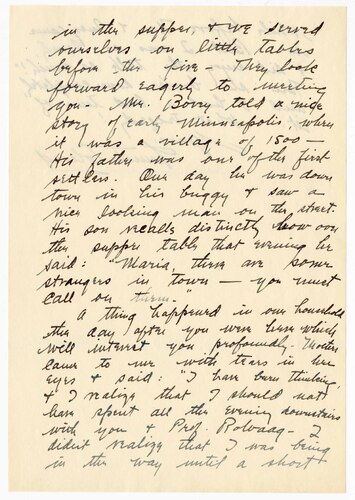 in the supper, & we served
ourselves on little tables
before the fire - They look
forward eagerly to meeting
you - Mr. Bovey told a nice
story of early Minneapolis, when
it was a village of 1500 -
His father was one of the first
settlers. One day he was down
town in his buggy & saw a
nice looking man on the street.
His son recalls distinctly how over
the supper table that evening he
said: "Maria, there are some
strangers in town - you must
call on them.
A thing happened in our household
the day after you were here which
will interest you profoundly. Mother
came to me with tears in her
eyes & said: "I have been thinking,
& I realize that I should not
have spent all the evening downstairs
with you & Prof. Rolvaag - I
didn't realize that I was being
in the way until a short